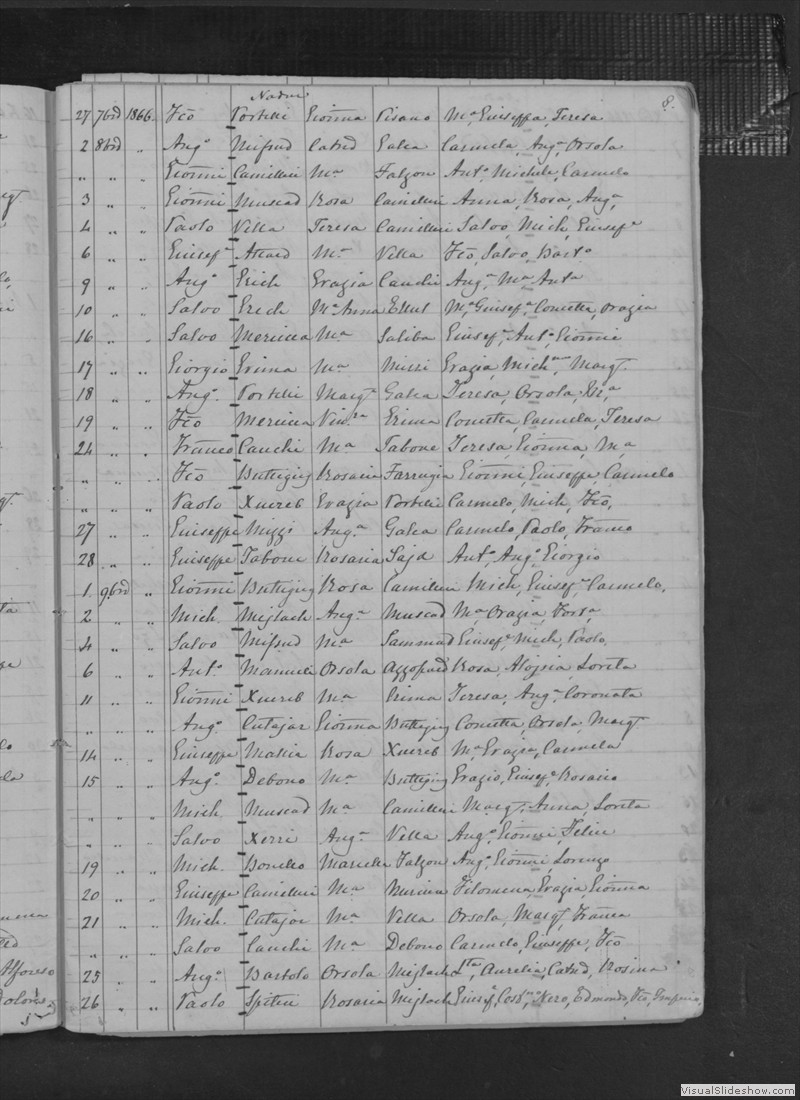 Nadur 8.
27 7brd 1866 Fco Portelli Giõnna Pisano Ma Giuseppa, Teresa
2 8brd " Ango Mifsud Catud Galea Carmela, Anga Orsola
" " " Giõnni Camilleri Ma Falzon Anto, Michele, Carmelo
3 " " Giõnni Muscad Rosa Camilleri Anna, Rosa, Anga
4 " " Paolo Vella Teresa Camilleri Salvo, Mich, Giusefe
6 " " Giusefe Attard Ma Vella Fco, Salvo, Barto
9 " " Ango Grech Grazia Cauchi Anga Ma Anta
10 " " Salvo Grech Ma Anna Ellul Ma, Giusefa, Concetta, Grazia
16 " " Salvo Mercieca Ma Saliba Giusefe, Anto, Giõnni
17 " " Giorgio Grima Ma Mizzi Grazia, Marg
18 " " Ango Portelli Marg Galea Teresa, Orsola
19 " " Fco Mercieca Grima Concetta, Carmela, Teresa
24 " " Franco Cauchi Ma Tabone Teresa, Giõnna, Ma
" " " Fco Buttigieg Rosaria Farrugia Giõnni, Giuseppe, Carmelo
" " " Paolo Xuereb Grazia Portelli Carmelo, Mich, Fco,
27 " " Giuseppe Mizzi Anga Galea Carmelo, Paolo, Franco
28 " " Giuseppe Tabone Rosaria Said Anto, Ango Giorgio
1 9brd " Giõnni Buttigieg Rosa Camilleri Mich, Giusefe Carmelo,
2 " " Mich. Mizlach Anga Muscad Ma Grazia
4 " " Salvo Mifsud Ma Sammud Giusefe Mich, Paolo,
6 " " Anto Manueli Orsola Azzopard Rosa, Aloysia, Loreta
11 " " Giõnni Xuereb Ma Grima Teresa, Anga Coronata
" " " Ango Cutajar Giõnna Buttigieg Concetta, Orsola, Marg
14 " " Giuseppe Rosa Xuereb Ma Grazia, Carmela
15 " " Ango Debono Ma Buttigieg Grazio, Giusefe Rosario
" " " Mich Muscad Ma Camilleri Marg, Anna, Loreta
" " " Salvo Xerri Anga Vella Ango Giõnni, Felice
19 " " Mich. Bonello Marcella Falzon Ango Giõnni, Lorenzo
20 " " Giuseppe Camilleri Ma Filomena, Grazia, Giõnna
21 " " Mich. Cutajar Ma Vella Orsola, Marg, Franca
" " " Salvo Cauchi Ma Debono Carmelo, Giuseppe, Fco
25 " " Ango Bartolo Orsola Mizlach Aurelia, Catud, Rosina
26 " " Paolo Spiteri Rosaria Mizlach Giusef, Nero, Edmondo, Fco,
VisualSlideshow.com